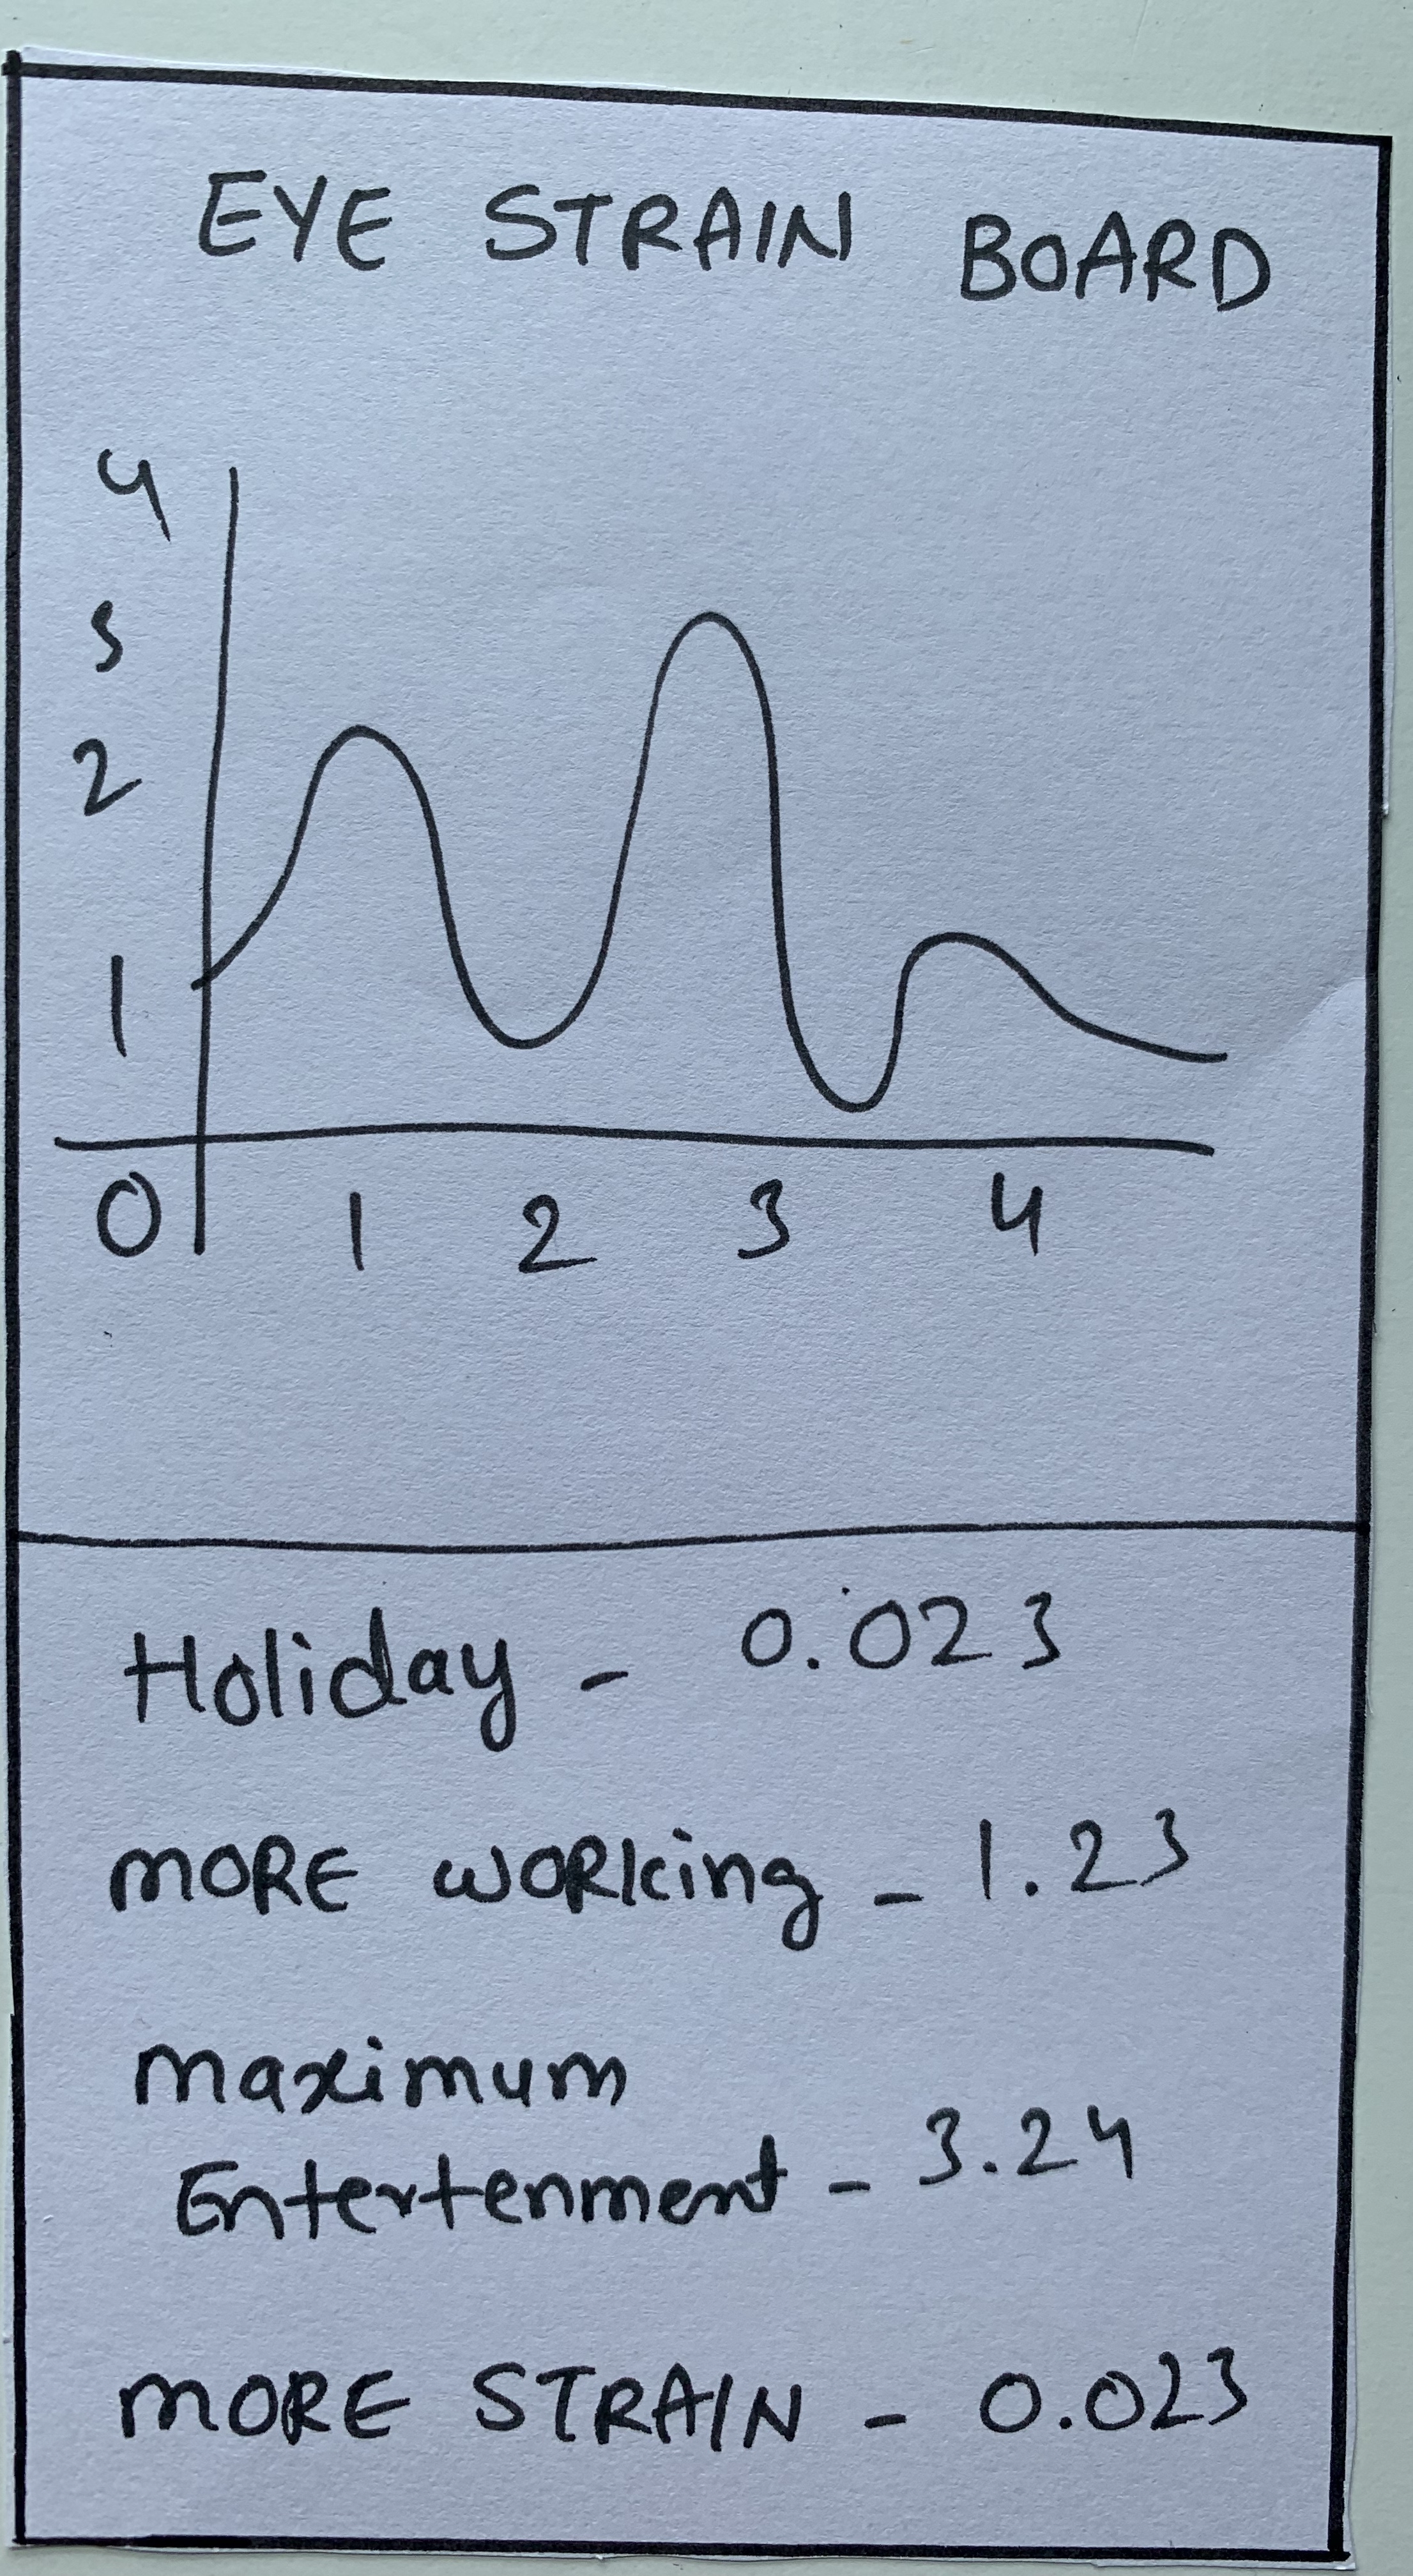 EYE STRAIN BOARD
4
3
2
1
0 1 2 3 4
Holiday - 0.023
MORE WORKing - 1.23
Maximum
Entertenment - 3.24
MORE STRAIN - 0.023